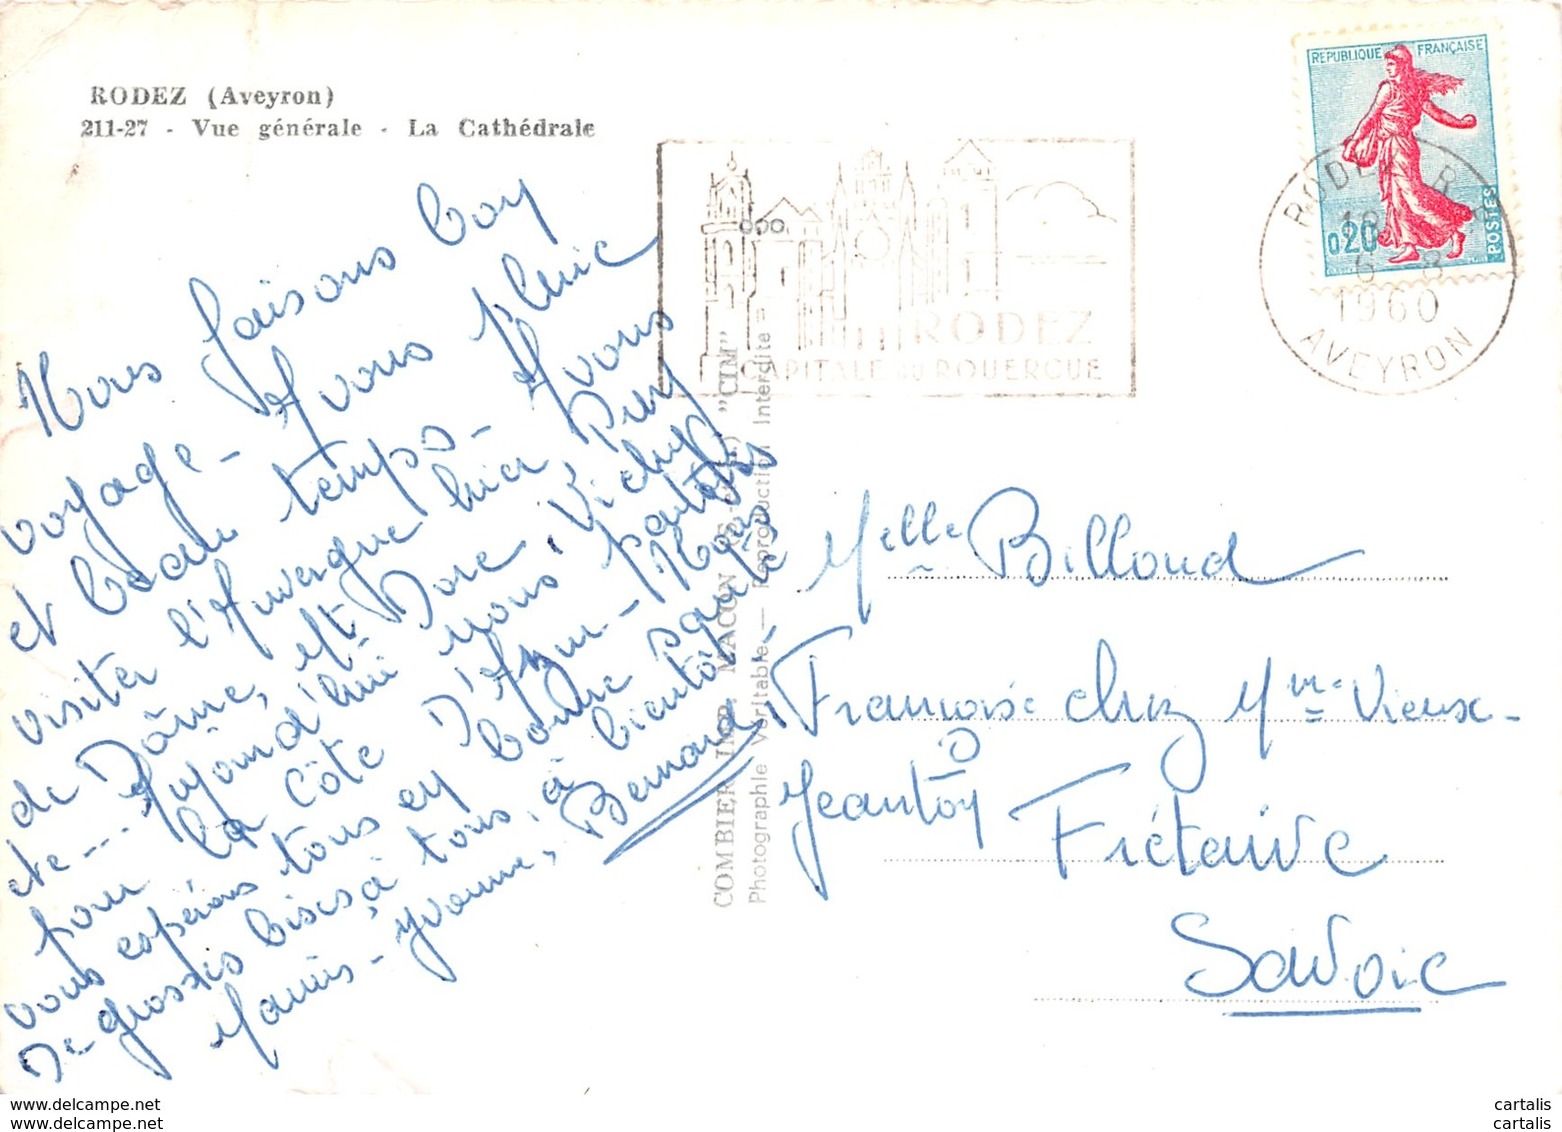 RODEZ (Aveyron)
211-27 - Vue générale - La Cathédrale
Nous faisons bon
voyage - Avons pluie
et beau temps - Avons
visiter l'Auvergne hier, Puy
de Dôme, Mt Dore, Vichy
etc... Aujourd'hui nous partons
pour la Côte D'Azur - Nous
vous espérons tous en bonne santé
De grosses bises à tous, à bientôt
Mamis - Yvonne, Bernard
COMBIER IMP. MACON "CIM"
Photographie Véritable — Reproduction Interdite
RODEZ
CAPITALE DU ROUERGUE
REPUBLIQUE FRANÇAISE
0,20
POSTES
RODEZ R.P.
18
6 - 8
1960
AVEYRON
Melle Billoud
Françoise chez Mme Vieux-
Jeantôy
Frétaive
Savoie
cartalis
cartalis
cartalis
cartalis